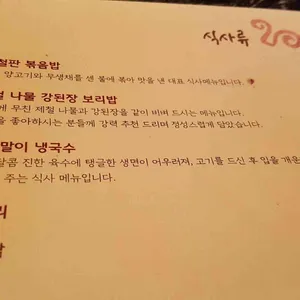 식사류
철판 볶음밥
양고기와 무생채를 센 불에 볶아 맛을 낸 대표 식사메뉴입니다.
나물 강된장 보리밥
무친 제철 나물과 강된장을 같이 비벼 드시는 메뉴입니다.
좋아하시는 분들께 강력 추천 드리며 정성스럽게 담았습니다.
말이 냉국수
진한 육수에 탱글한 생면이 어우러져, 고기를 드신 후 입을 개운
주는 식사 메뉴입니다.